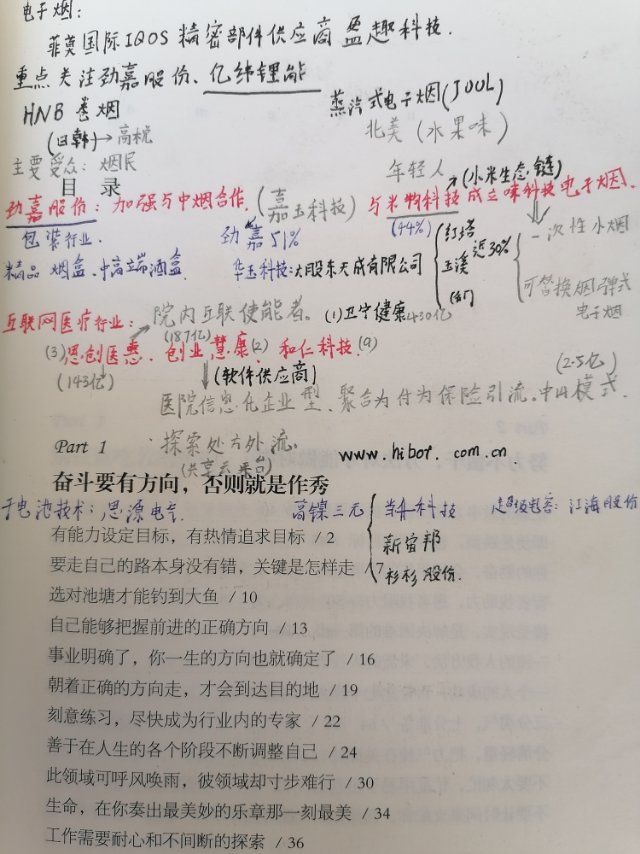 电子烟:
菲莫国际IQOS 精密部件供应商 盈趣科技.
重点关注劲嘉股份、亿纬锂能
HNB 卷烟
蒸汽式电子烟(JOUL)
(日韩)→高税
北美(水果味)
主要受众: 烟民
年轻人
(小米生态链)
目 录
劲嘉股份: 加强与中烟合作.
(嘉玉科技)
与米物科技成立味科技电子烟.
包装行业.
劲嘉51%
(44%)
红塔
玉溪
近30%
一次性小烟
精品烟盒、中高端酒盒
华玉科技:大股东天成有限公司
可替换烟弹式
电子烟
互联网医疗行业:
院内互联使能者.
(187亿)
(1)卫宁健康430亿
(3)思创医惠、创业慧康(2) 和仁科技.(9)
(143亿)
(软件供应商)
(2.5亿)
医院信息化企业型.聚合为付为保险引流.中山模式.
Part 1
探索处方外流.
(共享云平台)
www.hibor.com.cn.
奋斗要有方向，否则就是作秀
干电池技术: 思源电气
高镍三元
当升科技
超级电容: 江海股份
新宙邦
杉杉股份.
有能力设定目标，有热情追求目标 / 2
要走自己的路本身没有错，关键是怎样走 / 7
选对池塘才能钓到大鱼 / 10
自己能够把握前进的正确方向 / 13
事业明确了，你一生的方向也就确定了 / 16
朝着正确的方向走，才会到达目的地 / 19
刻意练习，尽快成为行业内的专家 / 22
善于在人生的各个阶段不断调整自己 / 24
此领域可呼风唤雨，彼领域却寸步难行 / 30
生命，在你奏出最美妙的乐章那一刻最美 / 34
工作需要耐心和不间断的探索 / 36